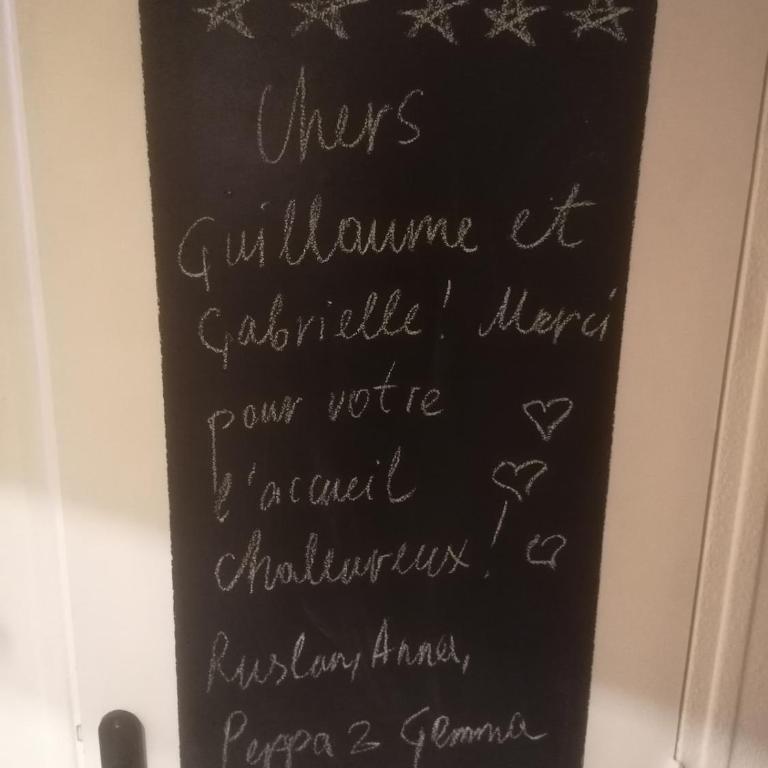 Chers
Guillaume et
Gabrielle! Merci
pour votre
l'accueil
chaleureux!
Ruslan, Anna,
Peppa 2 Gemma